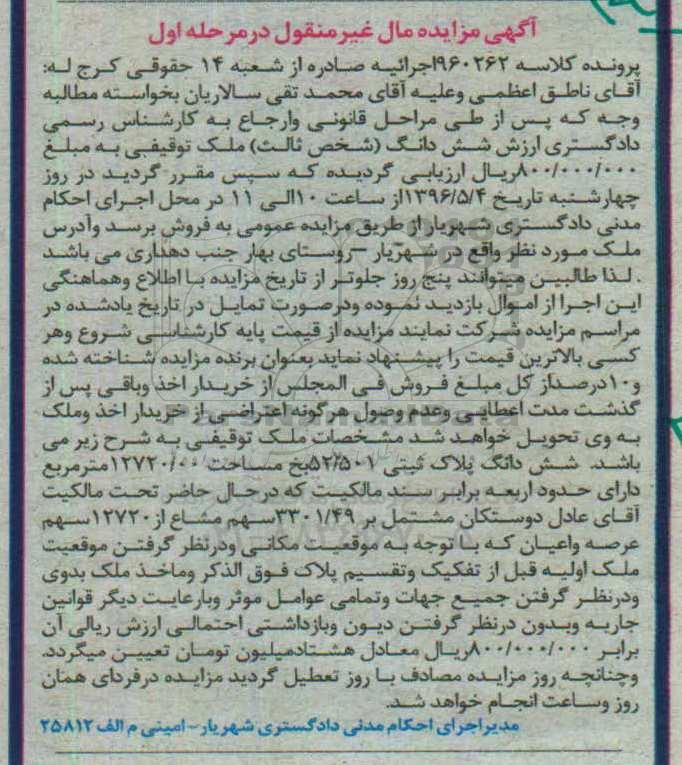 آگهی مزایده مال غیرمنقول درمرحله اول
پرونده کلاسه ۹۶۰۲۶۲اجرائیه صادره از شعبه ۱۴ حقوقی کرج له:
آقای ناطق اعظمی وعلیه آقای محمد تقی سالاریان بخواسته مطالبه
وجه که پس از طی مراحل قانونی وارجاع به کارشناس رسمی
دادگستری ارزش شش دانگ (شخص ثالث) ملک توقیفی به مبلغ
۸۰۰/۰۰۰/۰۰۰ریال ارزیابی گردیده که سپس مقرر گردید در روز
چهارشنبه تاریخ ۱۳۹۶/۵/۴از ساعت ۱۰الی ۱۱ در محل اجرای احکام
مدنی دادگستری شهریار از طریق مزایده عمومی به فروش برسد وآدرس
ملک مورد نظر واقع در شهریار –روستای بهار جنب دهداری می باشد
. لذا طالبین میتوانند پنج روز جلوتر از تاریخ مزایده با اطلاع وهماهنگی
این اجرا از اموال بازدید نموده ودرصورت تمایل در تاریخ یادشده در
مراسم مزایده شرکت نمایند مزایده از قیمت پایه کارشناسی شروع وهر
کسی بالاترین قیمت را پیشنهاد نماید بعنوان برنده مزایده شناخته شده
و۱۰درصداز کل مبلغ فروش فی المجلس از خریدار اخذ وباقی پس از
گذشت مدت اعطایی وعدم وصول هرگونه اعتراضی از خریدار اخذ وملک
به وی تحویل خواهد شد مشخصات ملک توقیفی به شرح زیر می
باشد. شش دانگ پلاک ثبتی ۵۲/۵۰۱بخ مساحت ۱۲۷۲۰/۰۰مترمربع
دارای حدود اربعه برابر سند مالکیت که درحال حاضر تحت مالکیت
آقای عادل دوستکان مشتمل بر ۳۳۰۱/۴۹سهم مشاع از۱۲۷۲۰سهم
عرصه واعیان که با توجه به موقعیت مکانی ودرنظر گرفتن موقعیت
ملک اولیه قبل از تفکیک وتقسیم پلاک فوق الذکر وماخذ ملک بدوی
ودرنظر گرفتن جمیع جهات وتمامی عوامل موثر وبارعایت دیگر قوانین
جاریه وبدون درنظر گرفتن دیون وبازداشتی احتمالی ارزش ریالی آن
برابر ۸۰۰/۰۰۰/۰۰۰ریال معادل هشتادمیلیون تومان تعیین میگردد.
وچنانچه روز مزایده مصادف با روز تعطیل گردید مزایده درفردای همان
روز وساعت انجام خواهد شد.
مدیراجرای احکام مدنی دادگستری شهریار- امینی م الف ۲۵۸۱۲